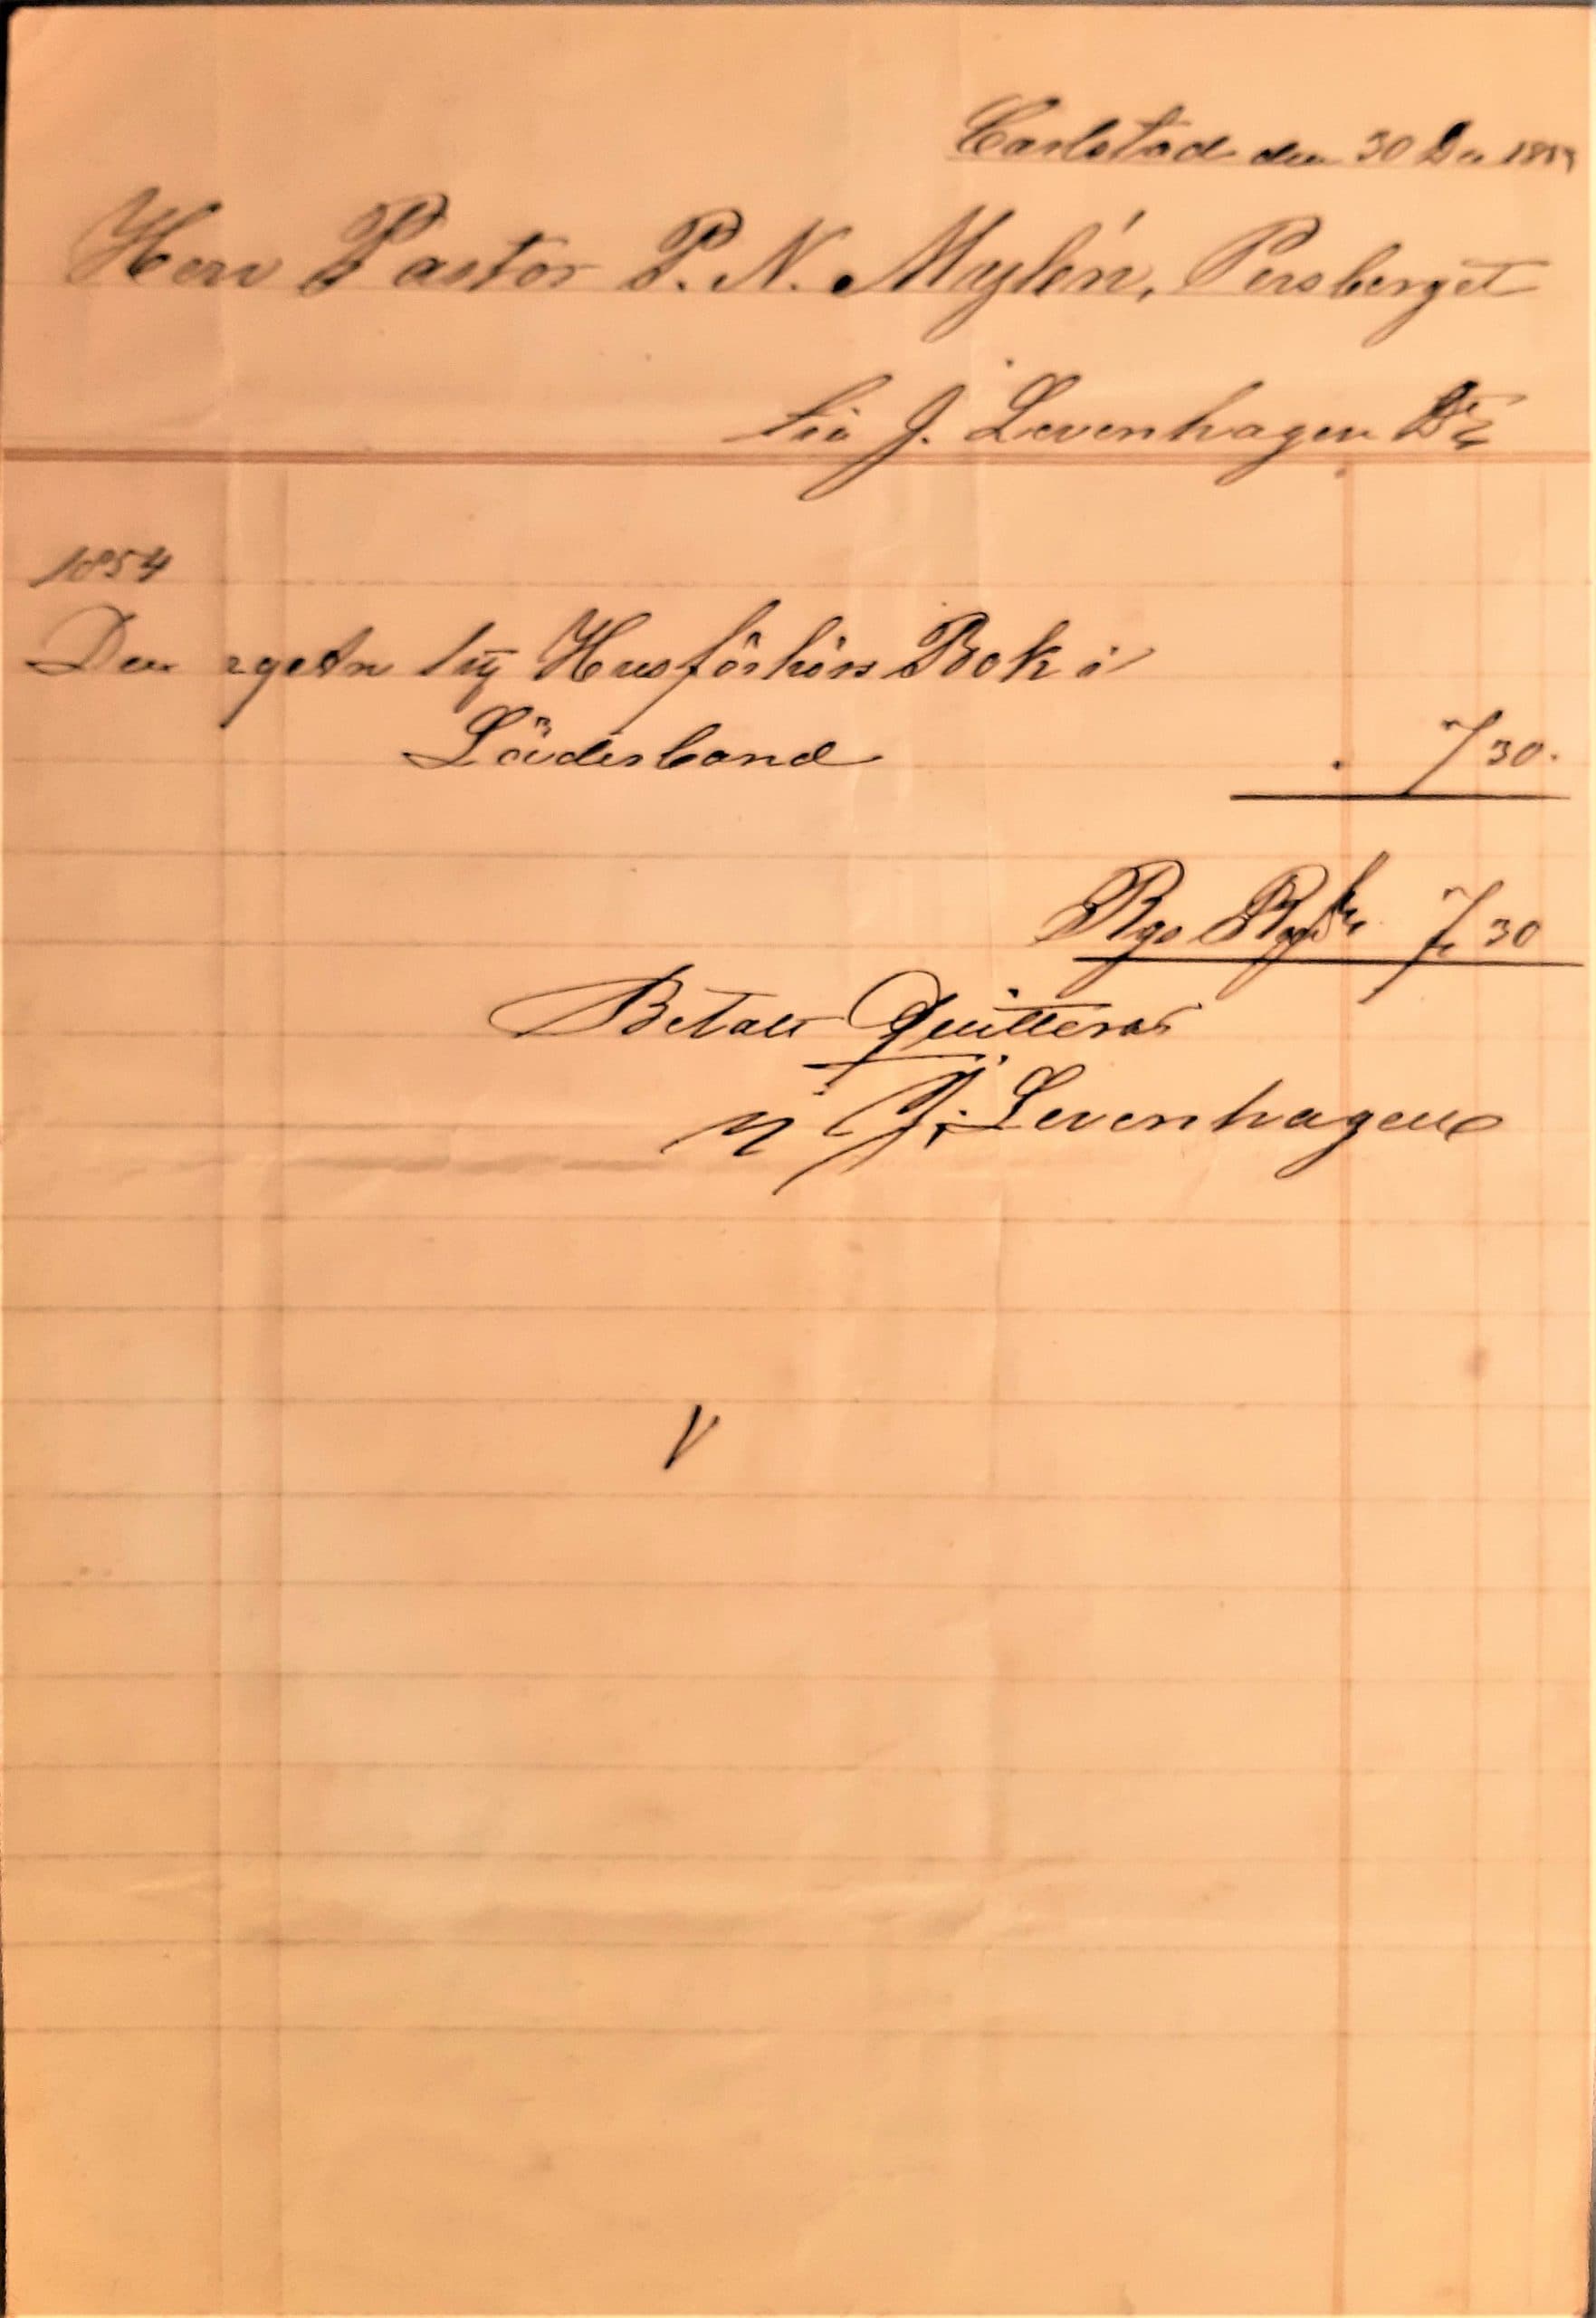 Carlstad den 30 1854
Herr Pastor P. N. Mylén, Persberget
till J. Levenhagen Dr
1854
Den Husförhörs Bok i
Läderband 7 30.
Rgs 7 30
Betalt Quitteras
J. Levenhagen
V